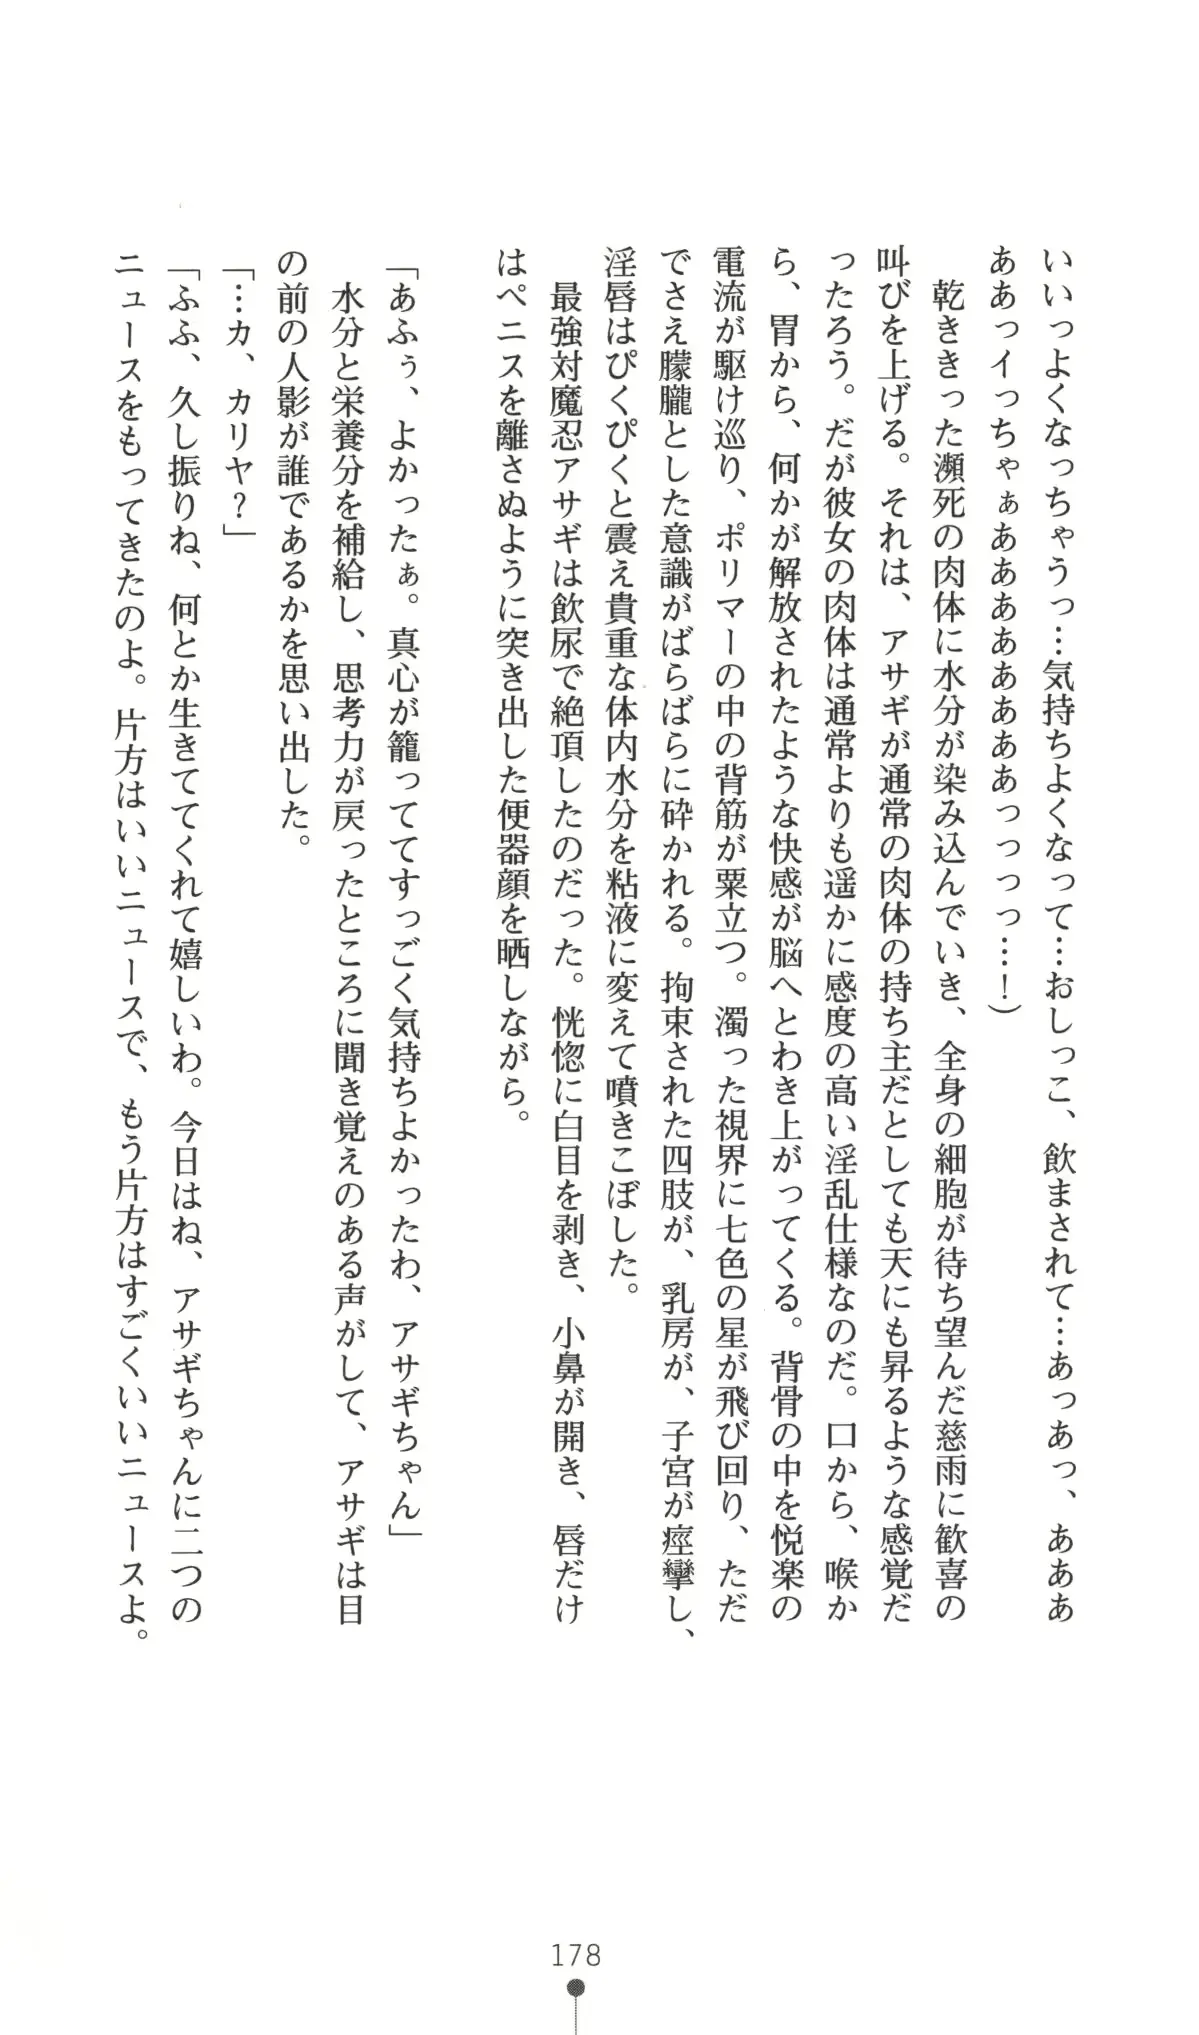 いいっよくなっちゃうっ…気持ちよくなって…おしっこ、飲まされて…あっあっ、あああ
ああっイっちゃぁああああああああっっっっ…！）
　乾ききった瀕死の肉体に水分が染み込んでいき、全身の細胞が待ち望んだ慈雨に歓喜の
叫びを上げる。それは、アサギが通常の肉体の持ち主だとしても天にも昇るような感覚だ
ったろう。だが彼女の肉体は通常よりも遥かに感度の高い淫乱仕様なのだ。口から、喉か
ら、胃から、何かが解放されたような快感が脳へとわき上がってくる。背骨の中を悦楽の
電流が駆け巡り、ポリマーの中の背筋が粟立つ。濁った視界に七色の星が飛び回り、ただ
でさえ朦朧とした意識がばらばらに砕かれる。拘束された四肢が、乳房が、子宮が痙攣し、
淫唇はぴくぴくと震え貴重な体内水分を粘液に変えて噴きこぼした。
　最強対魔忍アサギは飲尿で絶頂したのだった。恍惚に白目を剥き、小鼻が開き、唇だけ
はペニスを離さぬように突き出した便器顔を晒しながら。
「あふぅ、よかったぁ。真心が籠っててすっごく気持ちよかったわ、アサギちゃん」
　水分と栄養分を補給し、思考力が戻ったところに聞き覚えのある声がして、アサギは目
の前の人影が誰であるかを思い出した。
「…カ、カリヤ？」
「ふふ、久し振りね、何とか生きててくれて嬉しいわ。今日はね、アサギちゃんに二つの
ニュースをもってきたのよ。片方はいいニュースで、もう片方はすごくいいニュースよ。
178